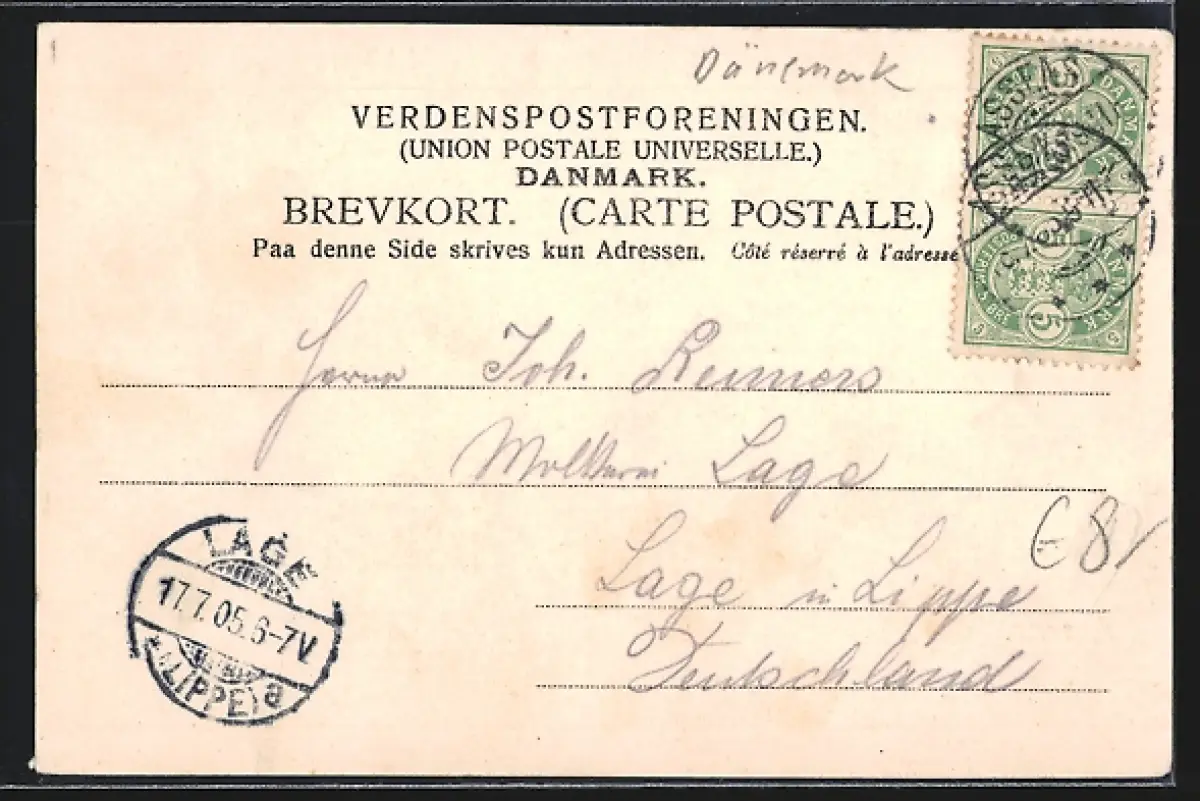 Dänemark
VERDENSPOSTFORENINGEN.
(UNION POSTALE UNIVERSELLE.)
DANMARK.
BREVKORT. (CARTE POSTALE.)
Paa denne Side skrives kun Adressen. Côté réserré à l'adresse
DANMARK
ASSENS
DANMARK
5
Herrn Joh. Reimers
Molkerei Lage
Lage in Lippe
Deutschland
€ 8
LAGE
17.7.05.6-7V.
* (LIPPE) a